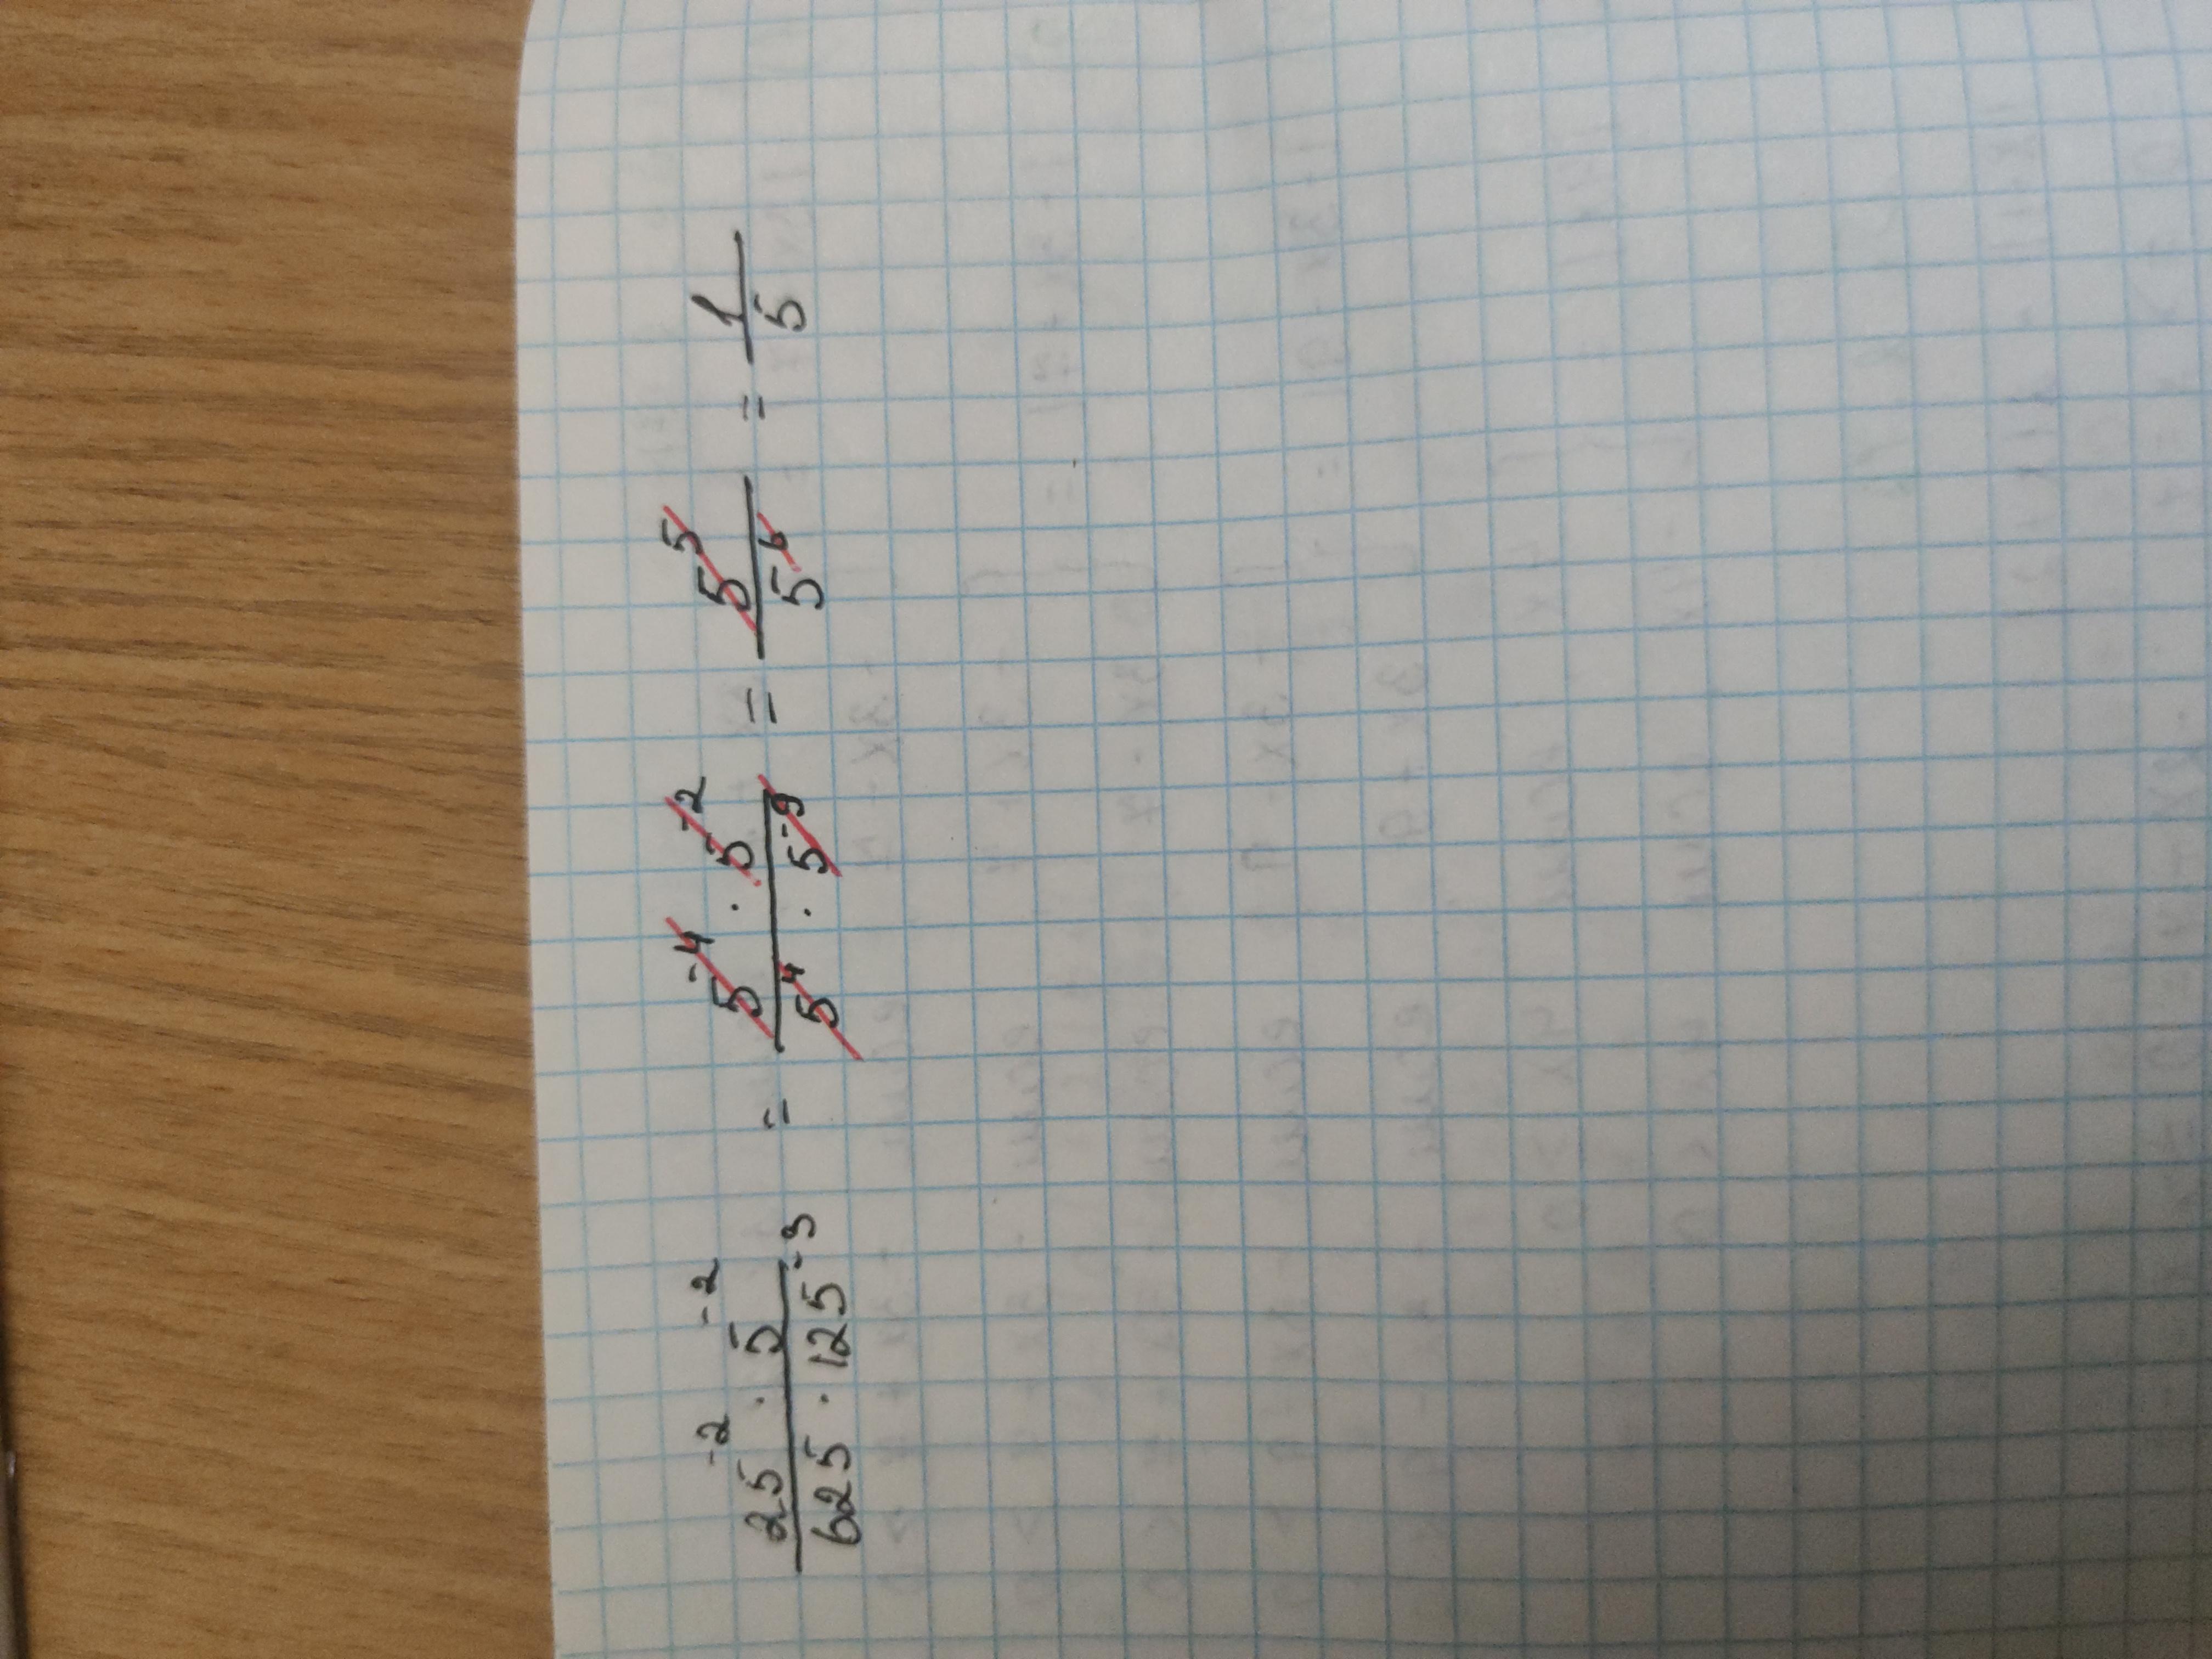 25⁻² · 5⁻² / 625 · 125⁻³ = 5⁻⁴ · 5⁻² / 5⁴ · 5⁻⁹ = 5⁵ / 5⁶ = 1 / 5